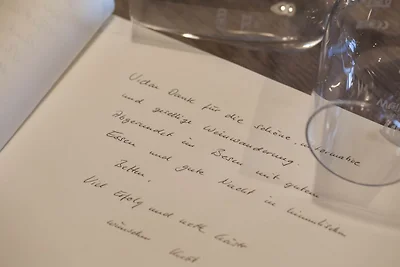 Vielen Dank für die schöne, informative
und geistige Weinwanderung.
Abgerundet im Besen mit gutem
Essen und gute Nacht in himmlischen
Betten.
Viel Erfolg und nette Gäste
wünschen